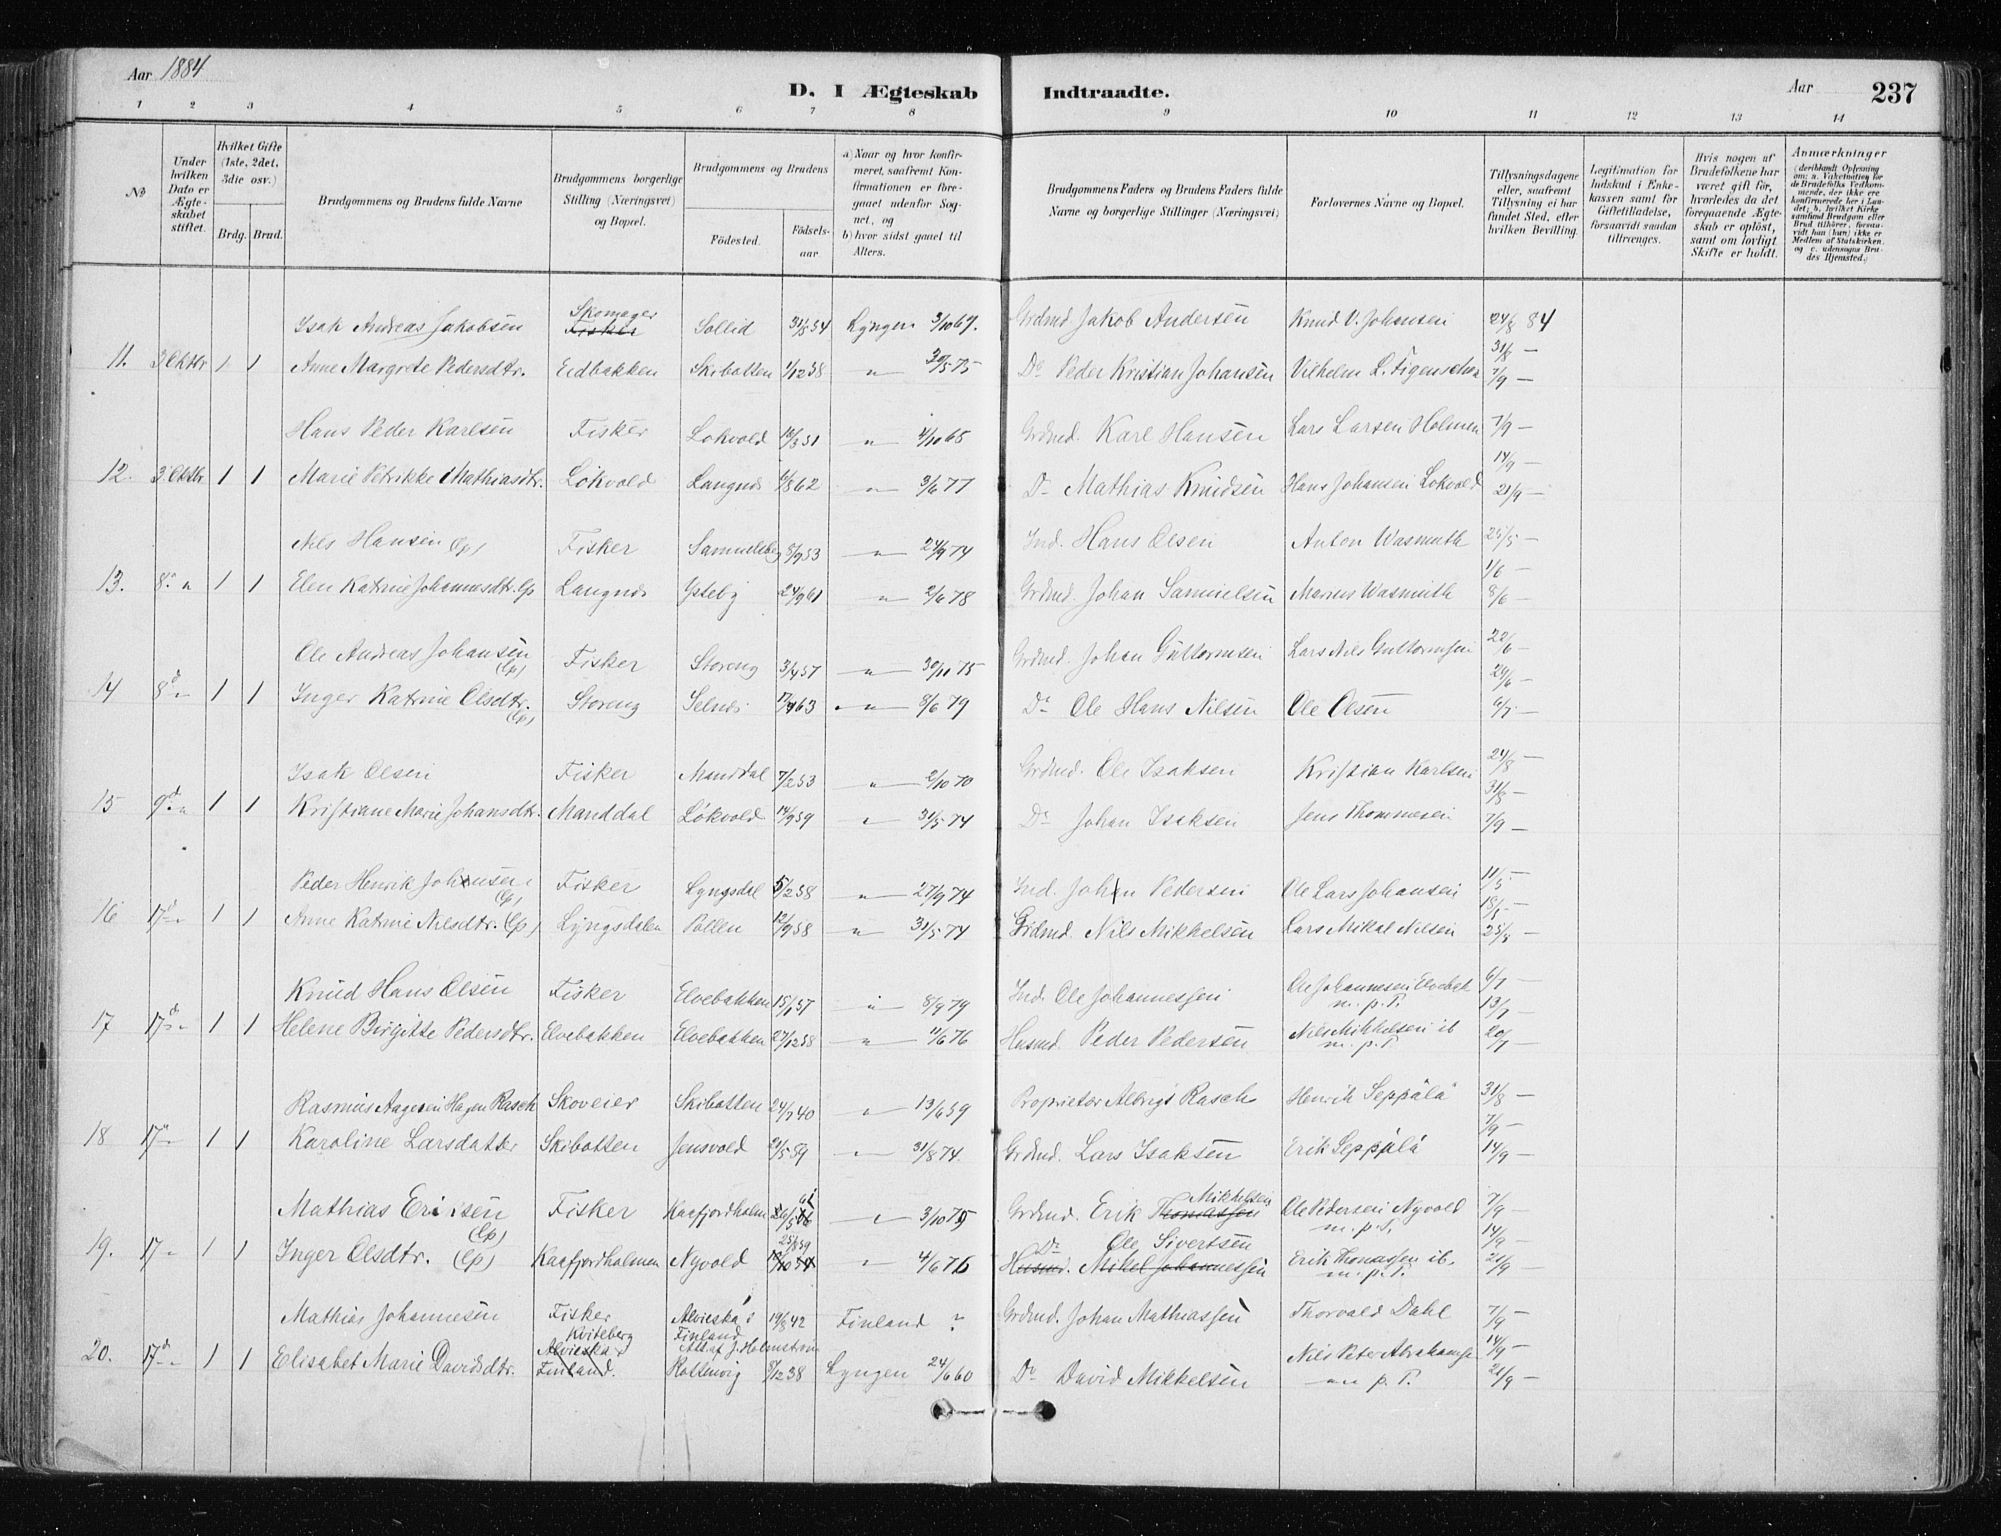 Aar 1884
D. I Ægteskab Indtraadte.
Aar 237
1 2 3 4 5 6 7 8 9 10 11 12 13 14
No
Under hvilken Dato er Ægteskabet stiftet.
Hvilket Gifte (1ste, 2det, 3die osv.)
Brdg. Brud.
Brudgommens og Brudens fulde Navne
Brudgommens borgerlige Stilling (Næringsvei) og Bopæl.
Brudgommens og Brudens
Födested. Födsels-aar
a) Naar og hvor konfirmeret, saafremt Konfirmationen er foregaaet udenfor Sognet, og
b) hvor sidst gaaet til Alters.
Brudgommens Faders og Brudens Faders fulde Navne og borgerlige Stillinger (Næringsvei)
Forlovernes Navne og Bopæl.
Tillysningsdagene eller, saafremt Tillysning ei har fundet Sted, efter hvilken Bevilling.
Legitimation for Indskud i Enkekassen samt for Giftetilladelse, forsaavidt saadan tiltrænges.
Hvis nogen af Brudefolkene har været gift för, hvorledes da det foregaaende Ægteskab er oplöst, samt om lovligt Skifte er holdt.
Anmærkninger
Isak Andreas Jakobsen Skomager Fisker Sollid 31/8 54 Lyngen 3/10 69. Grdmd. Jakob Andersen Knud V. Johansen 24/8 84
31/8 —
11. 3 Oktbr 1 1 Anne Margrete Pedersdtr. Eidbakken Skibotten 1/12 58 " 30/5 75 Do Peder Kristian Johansen Vilhelm L. Figenschou 7/9 —
Hans Peder Karlsen Fisker Lokvold 13/3 51 " 4/10 65 Grdmd. Karl Hansen Lars Larsen Holmen 7/9 —
14/9 —
12. 3 Oktbr. 1 1 Marie Petrikke Mathiasdtr. Lökvold Langnes 11/8 62 " 3/6 77 Do Mathias Knudsen Hans Johansen Lokvold 21/9 —
Nils Hansen (Lp) Fisker Samuelsberg 8/9 53 " 24/9 74 Ind. Hans Olsen Anton Wasmuth 25/5 —
1/6 —
13. 8de " 1 1 Elen Katrine Johannesdtr. Lp Langnes Ysteby 24/9 61 " 2/6 78 Grdmd. Johan Samuelsen Marius Wasmuth 8/6 —
Ole Andreas Johansen (Lp) Fisker Storeng 3/4 57 " 30/11 75 Grdmd. Johan Guttormsen Lars Nils Guttormsen 22/6 —
29/6 —
14 8de " 1 1 Inger Katrine Olsdtr. (Lp) Storeng Selnes 17/4 63 " 8/6 79 Do Ole Hans Nilsen Ole Olsen 6/7 —
Isak Olsen Fisker Manddal 7/2 53 " 2/10 70 Grdmd. Ole Isaksen Kristian Karlsen 24/8 —
31/8 —
15 9de " 1 1 Kristiane Marie Johansdtr. Manddal Lökvold 14/9 59 " 31/5 74 Do Johan Isaksen Jens Thommesen 7/9 —
Peder Henrik Johnsen (Lp) Fisker Lyngsdal 5/2 58 " 27/9 74 Ind. John Pedersen Ole Lars Johansen 11/5 —
18/5 —
16 17de " 1 1 Anne Katrine Nilsdtr. (Lp) Lyngsdalen Pollen 12/9 58 " 31/5 74 Grdmd. Nils Mikkelsen Lars Mikal Nilsen 25/5 —
Knud Hans Olsen Fisker Elvebakken 15/1 57 " 8/9 79 Ind. Ole Johannessen Ole Johannesen Elvebak 6/7 —
m. p. P. 13/7 —
17 17de " 1 1 Helene Birgitte Pedersdtr. Elvebakken Elvebakken 27/12 58 " 11/6 76 Husmd. Peder Pedersen Nils Mikkelsen ib 20/7 —
m. p. P.
Rasmus Aagesen Hagen Rasch Skoveier Skibotten 24/7 40 " 13/6 59 Proprietær Albrigt Rasch Henrik Seppälä 31/8 —
7/9 —
18 17de 1 1 Karoline Larsdatter Skibotten Jensvold 21/5 59 " 31/8 74. Grdmd. Lars Isaksen Erik Seppälä 14/9 —
Mathias Eriksen (Lp) Fisker Kaafjordholm " 3/10 75 Grdmd. Erik Thomassen Mikkelsen Ole Pedersen Nyvold 7/9 —
m. p. P. 14/9 —
25/8 59 Do Ole Sivertsen
19. 17 " 1 1 Inger Olsdtr. (Lp) Kaafjordholmen Nyvold " 4/6 76 Husmd. Mikel Johannessen Erik Thomassen ib. 21/9 —
m. p. P.
Mathias Johannesen Fisker Alvieska i Finland 19/8 42 Finland ? Grdmd. Johan Mathiassen Thorvald Dahl 7/9 —
Kviteberg 14/9 —
20. 17de " 1 1 Elisabet Marie Davidsdtr. Alvieska Finland. Rottenvig 8/12 38 Lyngen 24/6 60 Do David Mikkelsen Nils Peter Abrahamsen 21/9 —
m. p. P.